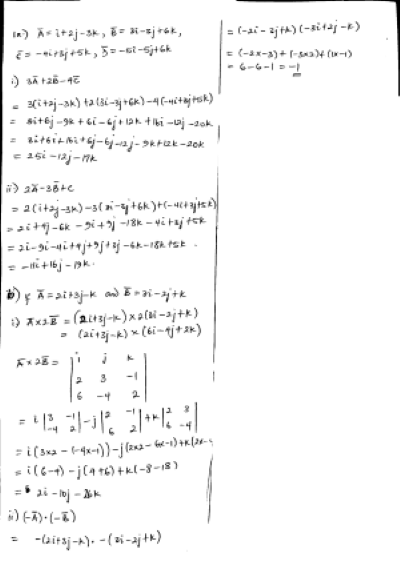 1a) A = i+2j-3k, B = 3i-3j+6k,
C = -4i+3j+5k, D = -5i-5j+6k
i) 3A+2B-4C
= 3(i+2j-3k)+2(3i-3j+6k)-4(-4i+3j+5k)
= 3i+6j-9k+6i-6j+12k+16i-12j-20k
= 3i+6i+16i+6j-6j-12j-9k+12k-20k
= 25i-12j-17k
ii) 2A-3B+C
= 2(i+2j-3k)-3(3i-3j+6k)+(-4i+3j+5k)
= 2i+4j-6k-9i+9j-18k-4i+3j+5k
= 2i-9i-4i+4j+9j+3j-6k-18k+5k.
= -11i+16j-19k.
b) if A = 2i+3j-k and B = 3i-2j+k
i) A×2B = (2i+3j-k)×2(3i-2j+k)
= (2i+3j-k)×(6i-4j+2k)
A×2B = | i j k |
2 3 -1
6 -4 2
= i |3 -1| -j |2 -1| +k |2 3|
-4 2 6 2 6 -4
= i(3×2-(-4×-1))-j(2×2-6×-1)+k(2×-4
= i(6-4)-j(4+6)+k(-8-18)
= 2i-10j-26k
ii) (-A)·(-B)
= -(2i+3j-k)·-(3i-2j+k)
= (-2i-3j+k)(-3i+2j-k)
= (-2×-3)+(-3×2)+(1×-1)
= 6-6-1 = -1